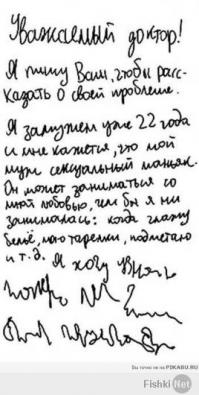 Уважаемый доктор!
Я пишу Вам, чтобы расс-
казать о своей проблеме.
Я замужем уже 22 года
и мне кажется, что мой
муж сексуальный маньяк.
Он может заниматься со
мной любовью, чем бы я ни
занималась: когда глажу
бельё, мою тарелки, подметаю
и т.д. Я хочу узнать
можно ли
Вы точно не на PIKABU.RU
FishkiNet